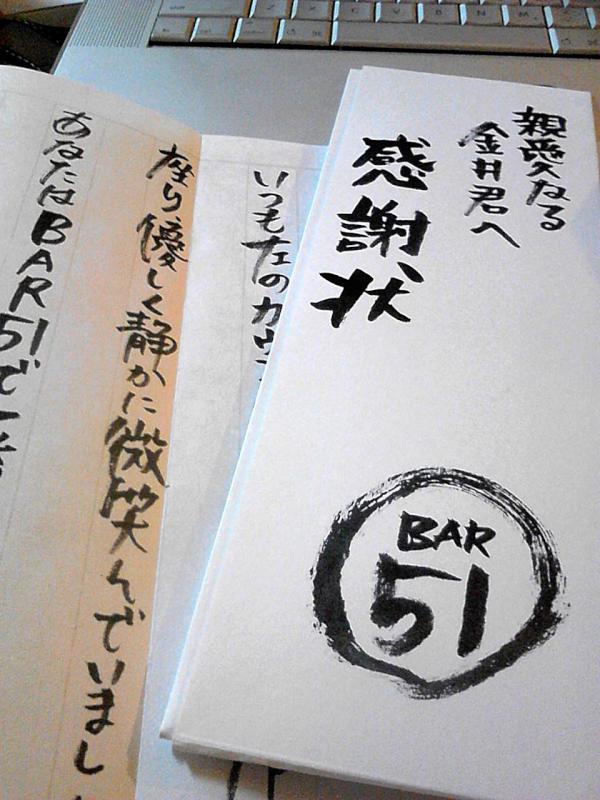 親愛なる
金井君へ
感謝状
BAR
51
いつも左のカウ
座り優しく静かに微笑んでいまし
あなたはBAR51で一